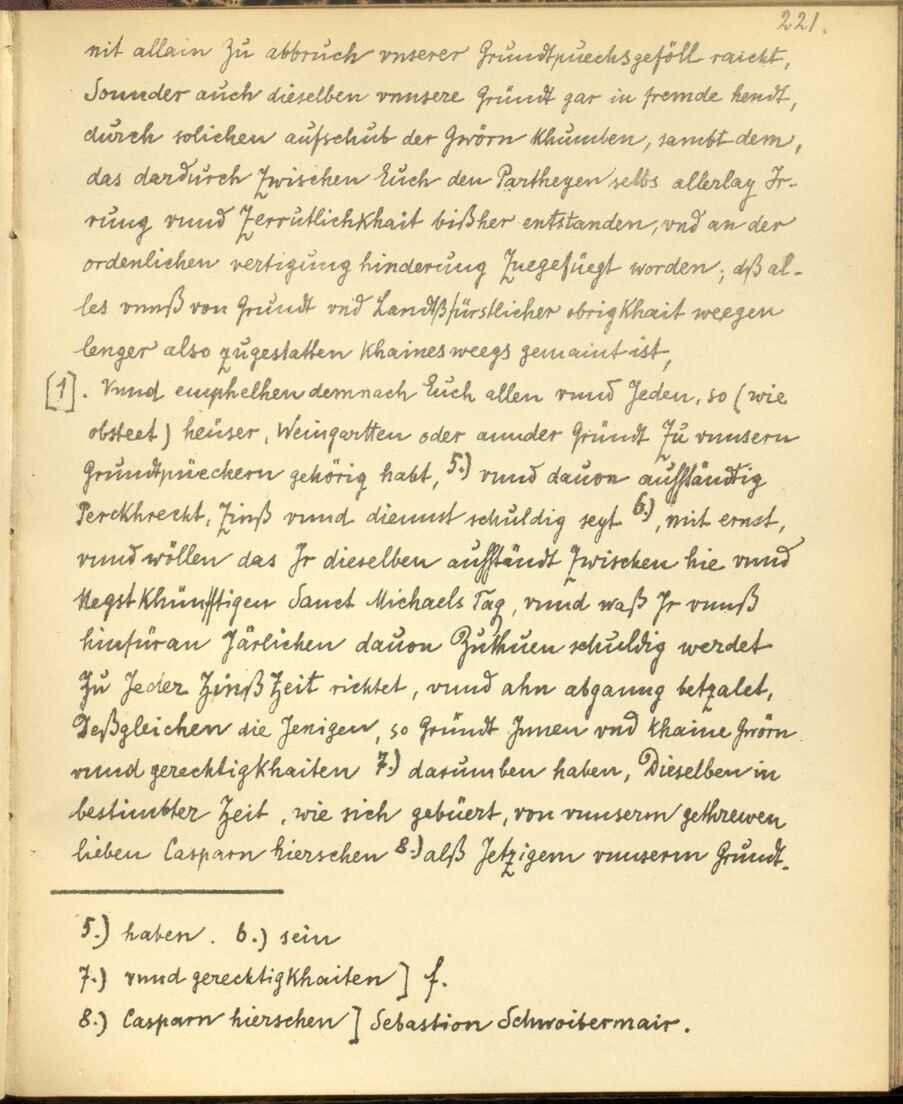 221.
nit allain zu abbruch vnserer Grundtpuechsgeföll raicht,
Sonnder auch dieselben vnnsere Gründt gar in fremde hendt,
durch solichen aufschub der Gwörn khumben, sambt dem,
das dardurch Zwischen Euch den Partheyen selbs allerlay Ir-
rung vnnd Zerrutlichkhait bißher entstanden, vnd an der
ordenlichen vertigung hinderung Zuegefüegt worden; dß al-
les vnnß von Grundt vnd Landtßfürstlicher obrigkhait weegen
lenger also zugestatten khaines weegs gemaint ist,
[1]. Vnnd emphelhen demnach Euch allen vnnd Jeden, so (wie
obsteet) heüser, Weingartten oder annder Gründt Zu vnnsern
Grundtpüechern gehörig habt, 5.) vnnd dauon aufständig
Perckhrecht, Zinß vnnd diennst schuldig seyt 6.), mit ernst,
vnnd wöllen das Ir dieselben aufständt Zwischen hie vnnd
Negstkhünfftigen Sanct Michaels Tag, vnnd waß Ir vnnß
hinfüran Järlichen dauon Zuthuen schuldig werdet
Zu Jeder Zinß Zeit richtet, vnnd ahn abganng betzalet,
Deßgleichen die Jenigen, so Gründt Innen vnd khaine Gwörn
vnnd gerechtigkhaiten 7.) darumben haben, Dieselben in
bestimbter Zeit, wie sich gebüert, von vnnserm gethrewen
lieben Casparn hierschen 8.) alß Jetzigem vnnserm Grundt-
5.) haben. 6.) sein
7.) vnnd gerechtigkhaiten] f.
8.) Casparn hierschen] Sebastion Schwoibermair.